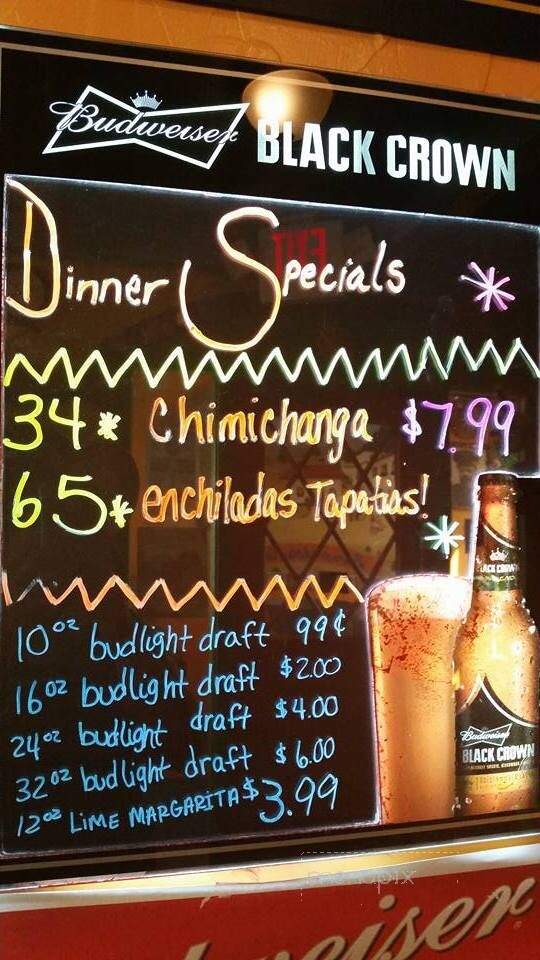 Budweiser BLACK CROWN
Dinner Specials
34* Chimichanga $7.99
65* enchiladas Tapatias!
10oz budlight draft 99¢
16oz budlight draft $2.00
24oz budlight draft $4.00
32oz budlight draft $6.00
12oz LIME MARGARITA $3.99
BLACK CROWN
Budweiser
BLACK CROWN
weiser